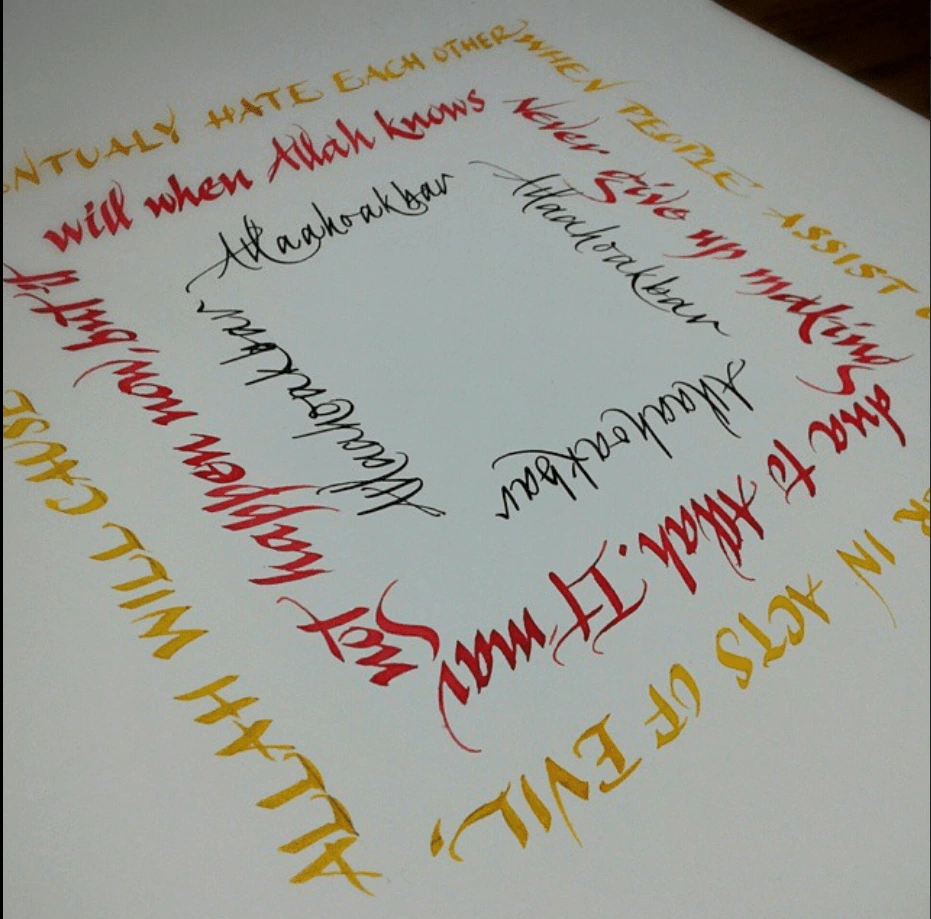 WHEN PEOPLE ASSIST
IN ACTS OF EVIL,
ALLAH WILL CAUSE
HATE EACH OTHER
Never give up making
dua to Allah. It may
not happen now, but if
will when Allah knows
Allaahoakbar
Allaahoakbar
Allaahoakbar
Allaahoakbar